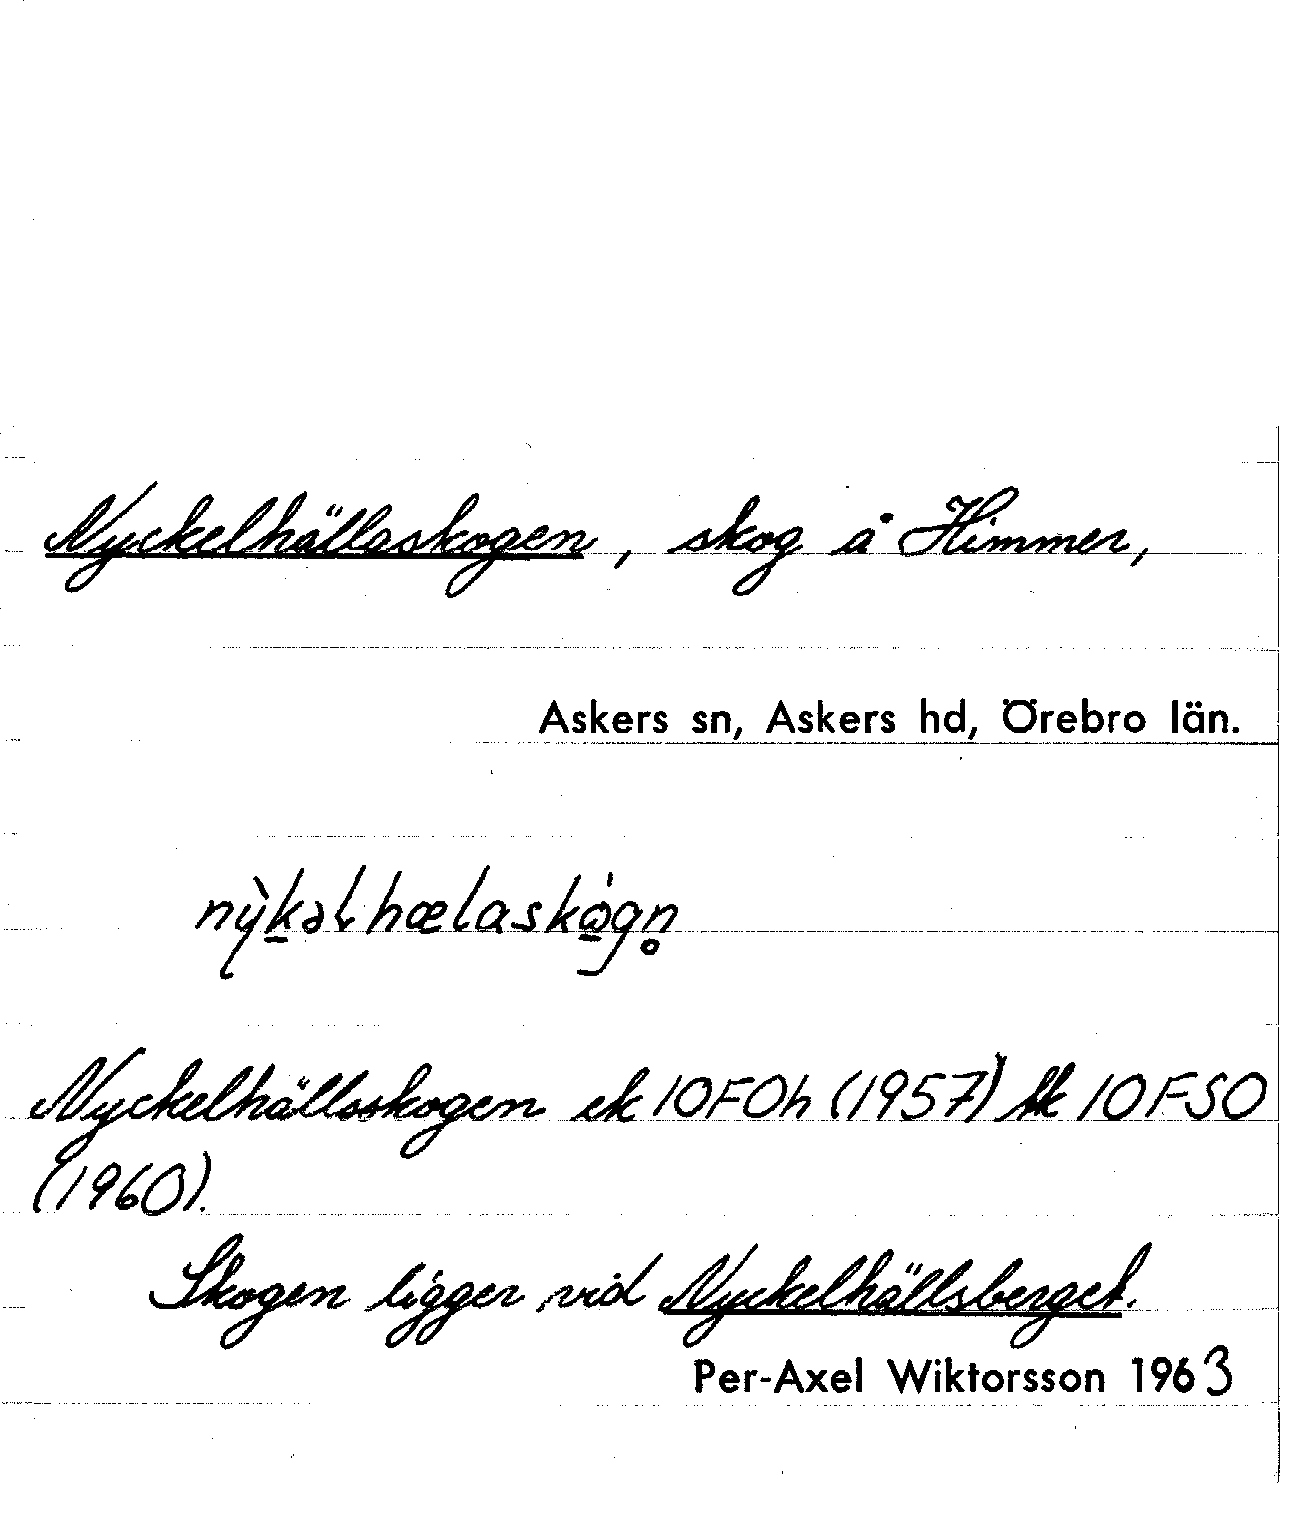 Nyckelhällaskogen, skog å Himmer,
Askers sn, Askers hd, Örebro län.
nỳkəlhælaskógn̥
Nyckelhällaskogen ek 10FOh (1957) hk 10FSO
(1960).
Skogen ligger vid Nyckelhällsberget.
Per-Axel Wiktorsson 1963